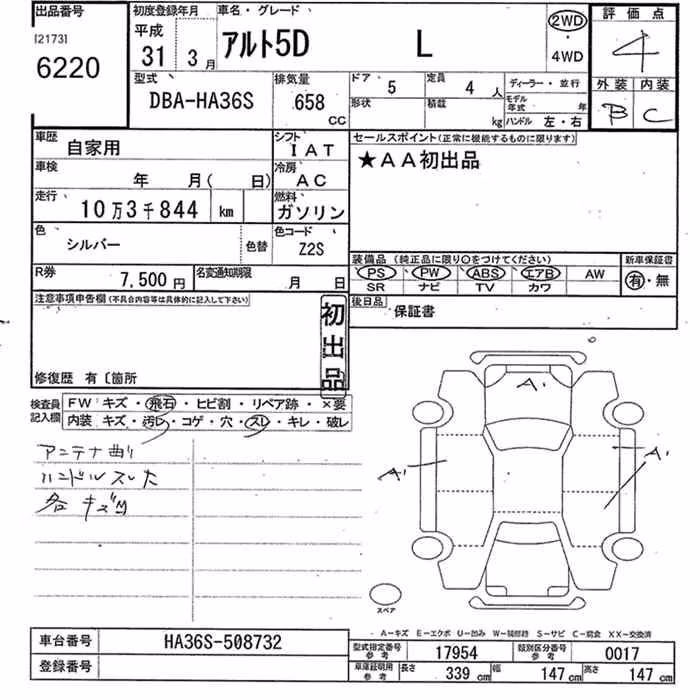 出品番号
[2173]
6220
初度登録年月
平成
31 3月
車名・グレード
アルト5D L
2WD
・
4WD
評価点
4
外装 内装
B C
型式
DBA-HA36S
排気量
658
CC
ドア 5
定員 4 人
ディーラー・並行
形状
積載 kg
モデル年式 年
ハンドル 左・右
車歴 自家用
シフト IAT
セールスポイント(正常に機能するものに限ります)
★AA初出品
車検 年 月( 日)
冷房 AC
走行 10万3千844 km
燃料 ガソリン
色 シルバー
色替
色コード Z2S
装備品 (純正品に限り○をつけてください)
新車保証書
PS PW ABS エアB AW
有・無
SR ナビ TV カワ
R券 7,500円
名変通知期限 月 日
後日品 保証書
注意事項申告欄(不具合内容等は具体的に記入して下さい)
初出品
修復歴 有〔箇所
検査員
記入欄
FW キズ・飛石・ヒビ割・リペア跡・×要
内装 キズ・汚レ・コゲ・穴・スレ・キレ・破レ
アンテナ曲り
ハンドルスレた
各キズ凹
A1
A1
A1
スペア
A-キズ E-エクボ U-凹み W-補修跡 S-サビ C-腐食 XX-交換済
車台番号 HA36S-508732
登録番号
型式指定番号
参考
17954
類別区分番号
参考
0017
車庫証明用
参考
長さ 339 cm
幅 147 cm
高さ 147 cm